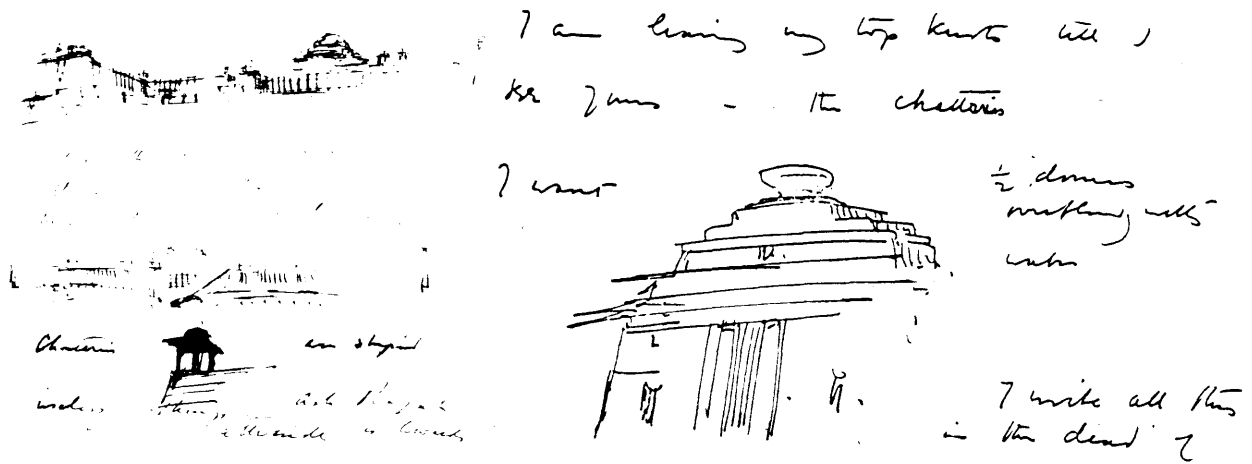 I am leaving my top knots till I
see yours - the chattris
I want
½ domes
overflowing with
water
Chattris are stupid
useless things
I write all this
in the dead of